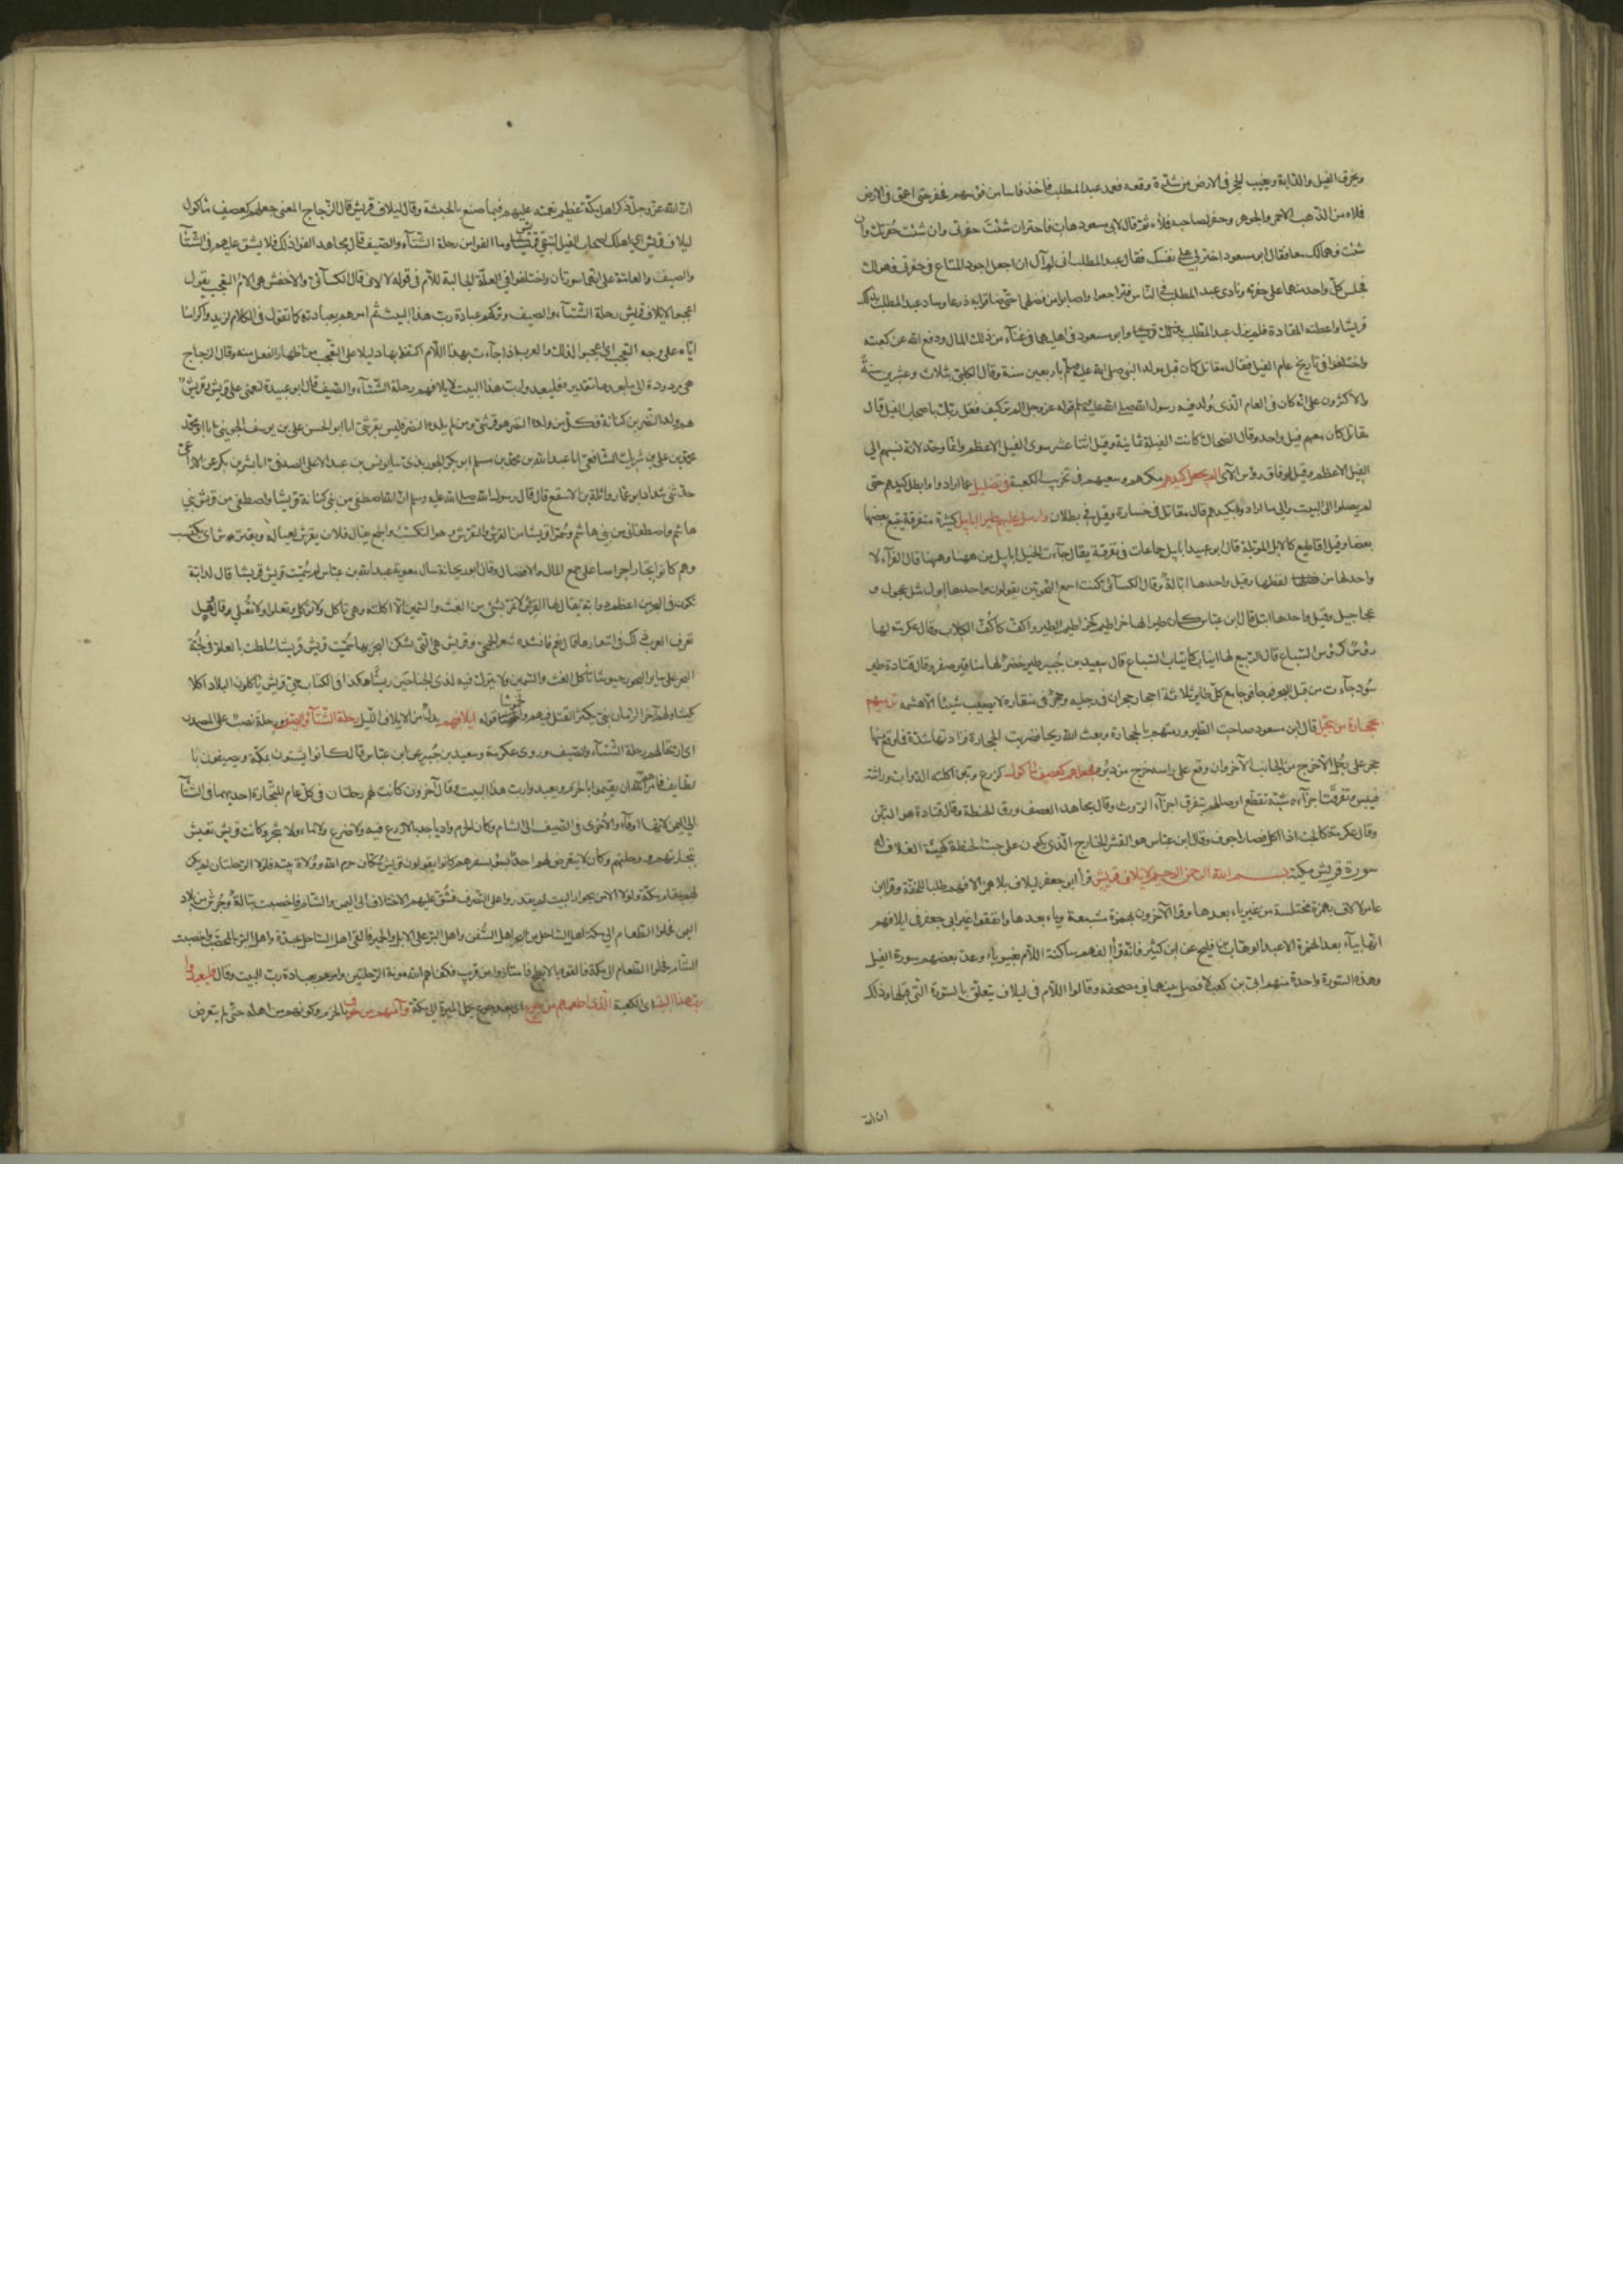 ويخرق الفيل والدابة ويغيب الحجر في الارض من شدة وقعه فعمد عبد المطلب فاخذ فاسا من فوسهم فحفر حتى اعمق في الارض
فملاه من الذهب الاحمر والجوهر وحفر لصاحبه فملاه ثم قال لابي مسعود هات فاختر ان شئت حفرتي وان شئت حفرتك وان
شئت فهما لك معا فقال ابو مسعود اختر لي على نفسك فقال عبد المطلب اني لم آل ان اجعل اجود المتاع في حفرتي فهو لك
فجلس كل واحد منهما على حفرته ونادى عبد المطلب في الناس فتراجعوا واصابوا من فضلهما حتى ضاقوا به ذرعا وساد عبد المطلب بذلك
قريشا واعطته المقادة فلم يزل عبد المطلب وابو مسعود في اهليهما في غناء من ذلك المال ودفع الله عن كعبته
واختلفوا في تاريخ عام الفيل فقال مقاتل كان قبل مولد النبي صلى الله عليه وسلم باربعين سنة وقال الكلبي بثلاث وعشرين سنة
والاكثرون على انه كان في العام الذي وُلد فيه رسول الله صلى الله عليه وسلم قوله عز وجل الم تر كيف فعل ربك باصحاب الفيل قال
مقاتل كان معهم فيل واحد وقال الضحاك كانت الفيلة ثمانية وقيل اثنا عشر سوى الفيل الاعظم وانما وحد لانه نسبهم الى
الفيل الاعظم وقيل لوفاق رؤس الآي الم يجعل كيدهم مكرهم وسعيهم في تخريب الكعبة في تضليل عما ارادوا وابطل كيدهم حتى
لم يصلوا الى البيت والى ما ارادوا بكيدهم قال مقاتل في خسارة وقيل في بطلان وارسل عليهم طيرا ابابيل كثيرة متفرقة يتبع بعضها
بعضا وقيل اقاطيع كالابل المؤبلة قال ابو عبيد ابابيل جماعات في تفرقة يقال جاءت الخيل ابابيل من ههنا وههنا قال الفراء لا
واحد لها من لفظها وقيل واحدها ابالة وقال الكسائي كنت اسمع النحويين يقولون واحدها ابول مثل عجول و
عجاجيل وقيل واحدها ابيل قال ابن عباس كان طيرا لها خراطيم كخراطيم الطير واكف كاكف الكلاب وقال عكرمة لها
رؤس كرؤس السباع قال الربيع لها انياب كانياب السباع قال سعيد بن جبير طير خضر لها مناقير صفر وقال قتادة طير
سود جاءت من قبل البحر فوجا فوجا مع كل طاير ثلاثة احجار حجران في رجليه وحجر في منقاره لا يصيب شيئا الا هشمه ترميهم
بحجارة من سجيل قال ابن مسعود صاحت الطير ورمتهم بالحجارة وبعث الله ريحا ضربت الحجارة فزادتها شدة فما وقع منها
حجر على رجل الا خرج من الجانب الآخر وان وقع على راسه خرج من دبره فجعلهم كعصف ماكول كزرع وتبن اكلته الدواب وراثته
فيبس وتفرقت اجزاءه شبه تقطع اوصالهم بتفرق اجزاء الروث وقال مجاهد العصف ورق الحنطة وقال قتادة هو التبن
وقال عكرمة كالحب اذا اكل فصار اجوف وقال ابن عباس هو القشر الخارج الذي يكون على حب الحنطة كهيئة الغلاف له
سورة قريش مكية بسم الله الرحمن الرحيم لايلاف قريش قرأ ابو جعفر ليلاف بلا همز الافهم طلبا للخفة وقرا ابن
عامر لالاف بهمزة مختلسة من غير ياء بعدها وقرا الآخرون بهمزة مشبعة وياء بعدها واتفقوا غير ابي جعفر في ايلافهم
انها بياء بعد الهمزة الا عبد الوهاب بن فليح عن ابن كثير فانه قرأ الفهم ساكنة اللام بغير ياء وعد بعضهم سورة الفيل
وهذه السورة واحدة منهم ابي بن كعب لا فصل بينهما في مصحفه وقالوا اللام في ليلاف يتعلق بالسورة التي قبلها وذلك
ان الله
ان الله عز وجل ذكر اهل مكة عظيم نعمته عليهم فيما صنع بالحبشة وقال ليلاف قريش قال الزجاج المعنى جعلهم كعصف ماكول
ليلاف قريش اي اهلك اصحاب الفيل لتبقى قريش وما الفوا من رحلة الشتاء والصيف قال مجاهد الفوا ذلك فلا يشق عليهم في الشتاء
والصيف والعامة على انهما سورتان واختلفوا في العلة الجالبة للام في قوله لايلاف قال الكسائي والاخفش هي لام التعجب يقول
اعجبوا لايلاف قريش رحلة الشتاء والصيف وتركهم عبادة رب هذا البيت ثم امرهم بعبادته كما تقول في الكلام لزيد واكرامنا
اياه على وجه التعجب اي اعجبوا لذلك والعرب اذا جاءت بهذا اللام اكتفوا بها دليلا على التعجب من اظهار الفعل منه وقال الزجاج
هي مردودة الى ما بعدها تقديره فليعبدوا رب هذا البيت لايلافهم رحلة الشتاء والصيف قال ابو عبيدة
هم ولد النضر بن كنانة فكل من ولده النضر هو قرشي ومن لم يلده النضر فليس بقرشي انا ابو الحسن علي بن يوسف الجويني انا ابو محمد
محمد بن علي بن شريك الشافعي انا عبد الله بن محمد بن مسلم ابو بكر الجوربذي نا يونس بن عبد الاعلى الصدفي انا بشر بن بكر عن الاوزاعي
حدثني شداد ابو عمار واثلة بن الاسقع قال قال رسول الله صلى الله عليه وسلم ان الله اصطفى من بني كنانة قريشا واصطفى من قريش بني
هاشم واصطفاني من بني هاشم وسموا قريشا من القرش والتقرش وهو التكسب والجمع يقال فلان يقرش لعياله ويقترش اي يكتسب
وهم كانوا تجارا حراصا على جمع المال والافضال وقال ابو ريحانة سال معوية عبد الله بن عباس لم سميت قريش قريشا قال لدابة
تكون في البحر من اعظم دوابه يقال لها القرش لا تمر بشيء من الغث والسمين الا اكلته وهي تاكل ولا تؤكل وتعلو ولا تعلى وقال وهل
تعرف العرب ذلك في اشعارها قال نعم فانشده شعر الجمحي وقريش هي التي تسكن البحر بها سميت قريش قريشا سلطت بالعلو في لجة
البحر على ساير البحور جيوشا تأكل الغث والسمين ولا تترك فيه لذي الجناحين ريشا هكذا في الكتاب حي قريش ياكلون البلاد اكلا
كميشا ولهم آخر الزمان نبي يكثر القتل فيهم والخموشا قوله ايلافهم بدل من الايلاف الاول رحلة الشتاء والصيف رحلة نصب على المصدر
اي ارتحالهم رحلة الشتاء والصيف وروى عكرمة وسعيد بن جبير عن ابن عباس قال كانوا يشتون بمكة ويصيفون با
لطايف فامرهم الله ان يقيموا بالحرم ويعبدوا رب هذا البيت وقال آخرون كانت لهم رحلتان في كل عام للتجارة احديهما في الشتاء
الى اليمن لانها ادفاء والاخرى في الصيف الى الشام وكان الحرم واديا جدبا لا زرع فيه ولا ضرع ولا ماء ولا شجر وكانت قريش تعيش
بتجارتهم ورحلتهم وكان لا يتعرض لهم احد بسوء في سفرهم كانوا يقولون قريش سكان حرم الله وولاة بيته فلولا الرحلتان لم يكن
لهم مقام بمكة ولولا الامن بجوار البيت لم يقدروا على التصرف فشق عليهم الاختلاف الى اليمن والشام فاخصبت تبالة وجرش من بلاد
اليمن فحملوا الطعام الى مكة اهل الساحل من البحر اهل السفن واهل البر على الابل والحمير فالقى اهل الساحل بجدة واهل البر بالمحصب واخصبت
الشام فحملوا الطعام الى مكة فالقوا بالابطح فامتاروا من قرب فكفاهم الله مونة الرحلتين وامرهم بعبادة رب البيت وقال فليعبدوا
رب هذا البيت اي الكعبة الذي اطعمهم من جوع اي من بعد جوع بحمل الميرة الى مكة وآمنهم من خوف بالحرم وكونهم من اهله حتى لم يتعرض